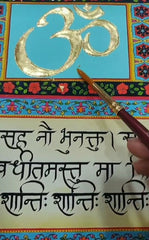 ॐ
सह नौ भुनक्तु।
धीतमस्तु मा
शान्तिः शान्तिः शान्तिः